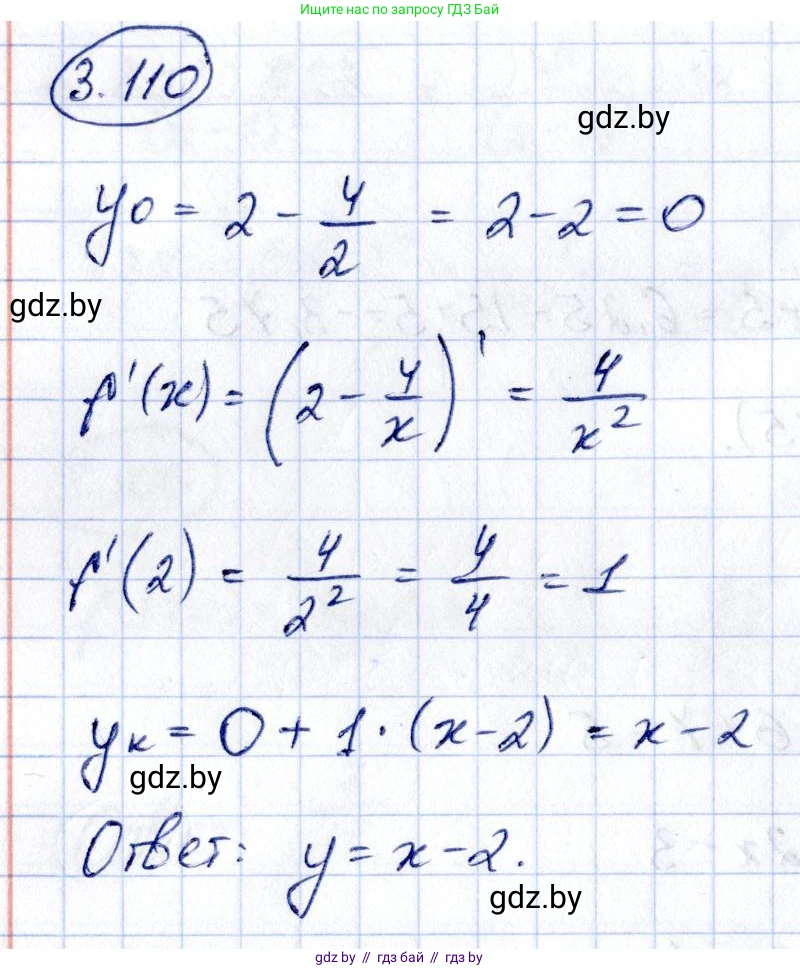 Ищите нас по запросу ГДЗ Бай
3.110
gdz.by
y₀ = 2 - 4/2 = 2 - 2 = 0
gdz.by
f'(x) = (2 - 4/x)' = 4/x²
f'(2) = 4/2² = 4/4 = 1
yк = 0 + 1 · (x - 2) = x - 2
gdz.by
Ответ: y = x - 2.
gdz.by
gdz.by // гдз бай // gdz by